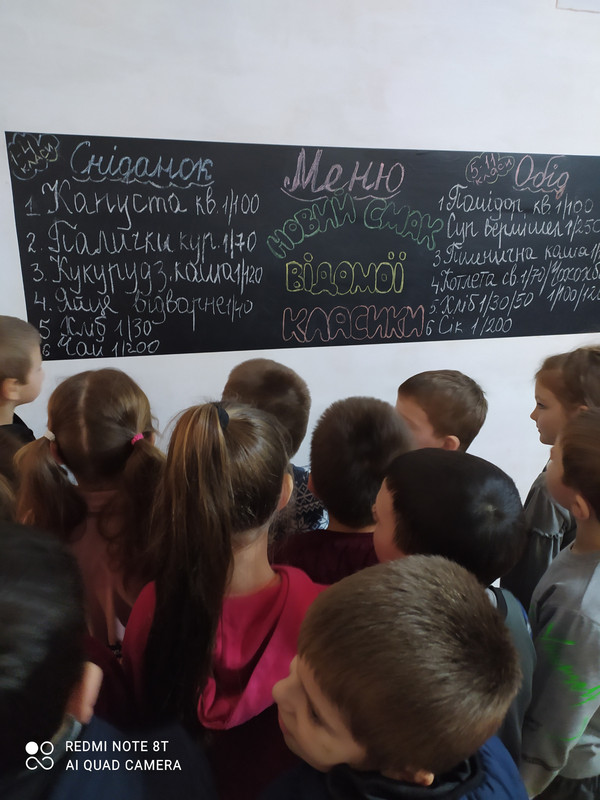 1-4
класи
Сніданок
1. Капуста кв. 1/100
2. Палички кур. 1/70
3. Кукурудз. каша 1/120
4. Яйце відварне 1/40
5 Хліб 1/30
6 Чай 1/200
Меню
НОВИЙ СМАК
ВІДОМОЇ
КЛАСИКИ
5-11
класи
Обід
1. Помідор кв. 1/100
Суп вермішел 1/250
3. Пшенична каша 1/
4. Котлета св. 1/70/
5. Хліб 1/30/50 1/100/120
6 Сік 1/200
REDMI NOTE 8T
AI QUAD CAMERA